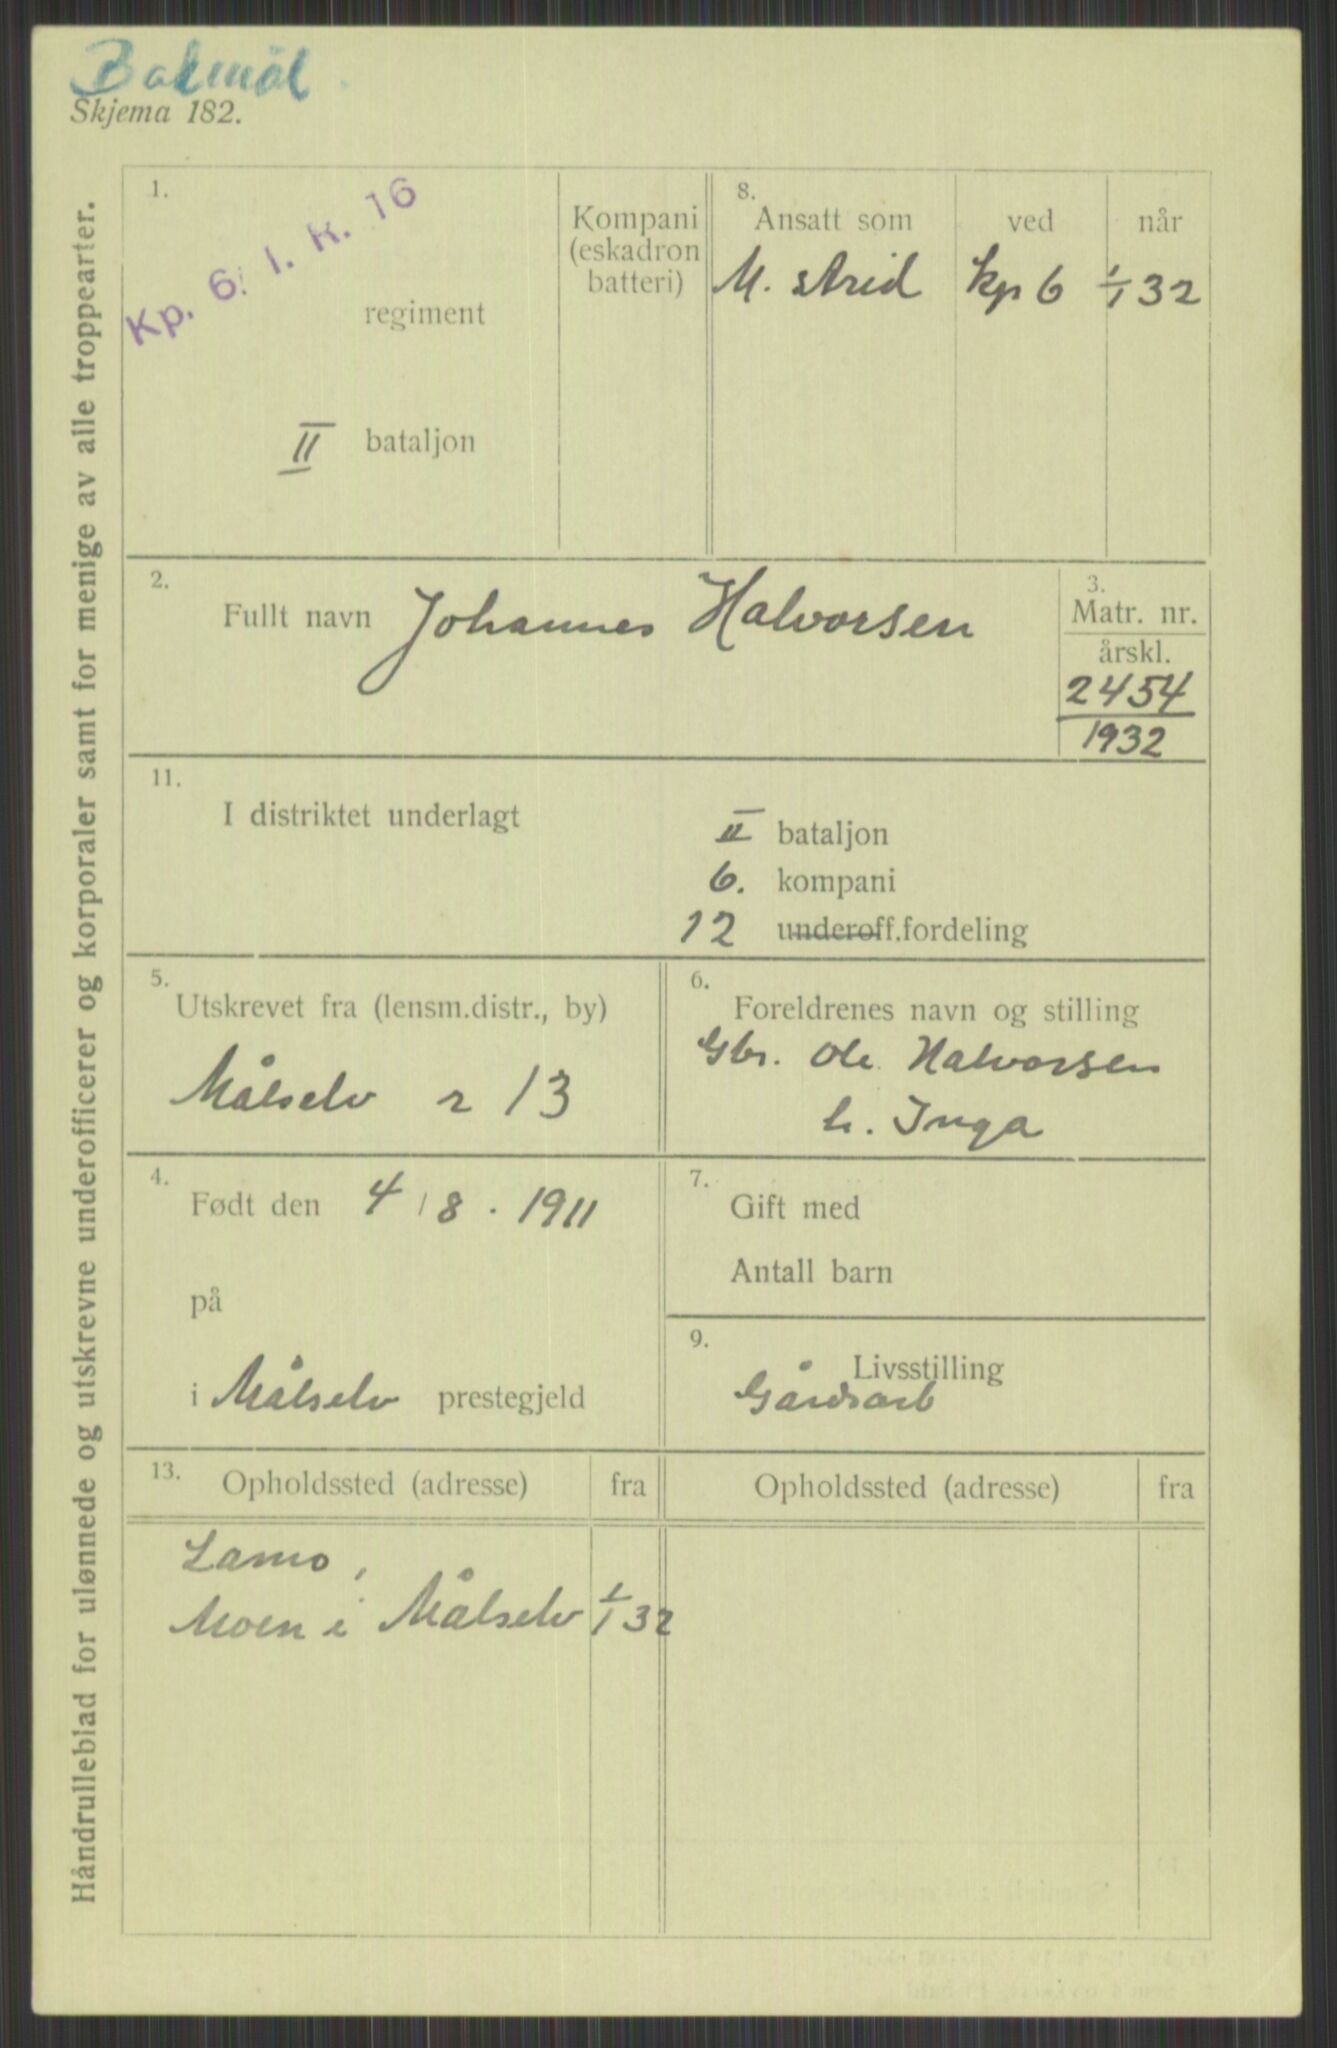 Balmål
Skjema 182.
Håndrulleblad for ulønnede og utskrevne underofficerer og korporaler samt for menige av alle troppearter.
1.
Kp. 6. I. R. 16
regiment
II bataljon
Kompani
(eskadron
batteri)
8.
Ansatt som
ved
når
M. strid kp 6 1/1 32
2.
Fullt navn Johannes Halvorsen
3.
Matr. nr.
årskl.
2454
1932
11.
I distriktet underlagt
II bataljon
6. kompani
12 underoff.fordeling
5.
Utskrevet fra (lensm.distr., by)
Målselv r 13
6.
Foreldrenes navn og stilling
Gbr. Ole Halvorsen
h. Inga
4.
Født den 4/8. 1911
på
i Målselv prestegjeld
7.
Gift med
Antall barn
9.
Livsstilling
Gårdsarb
13.
Opholdssted (adresse)
fra
Opholdssted (adresse)
fra
Lamo,
Moen i Målselv 1/1 32